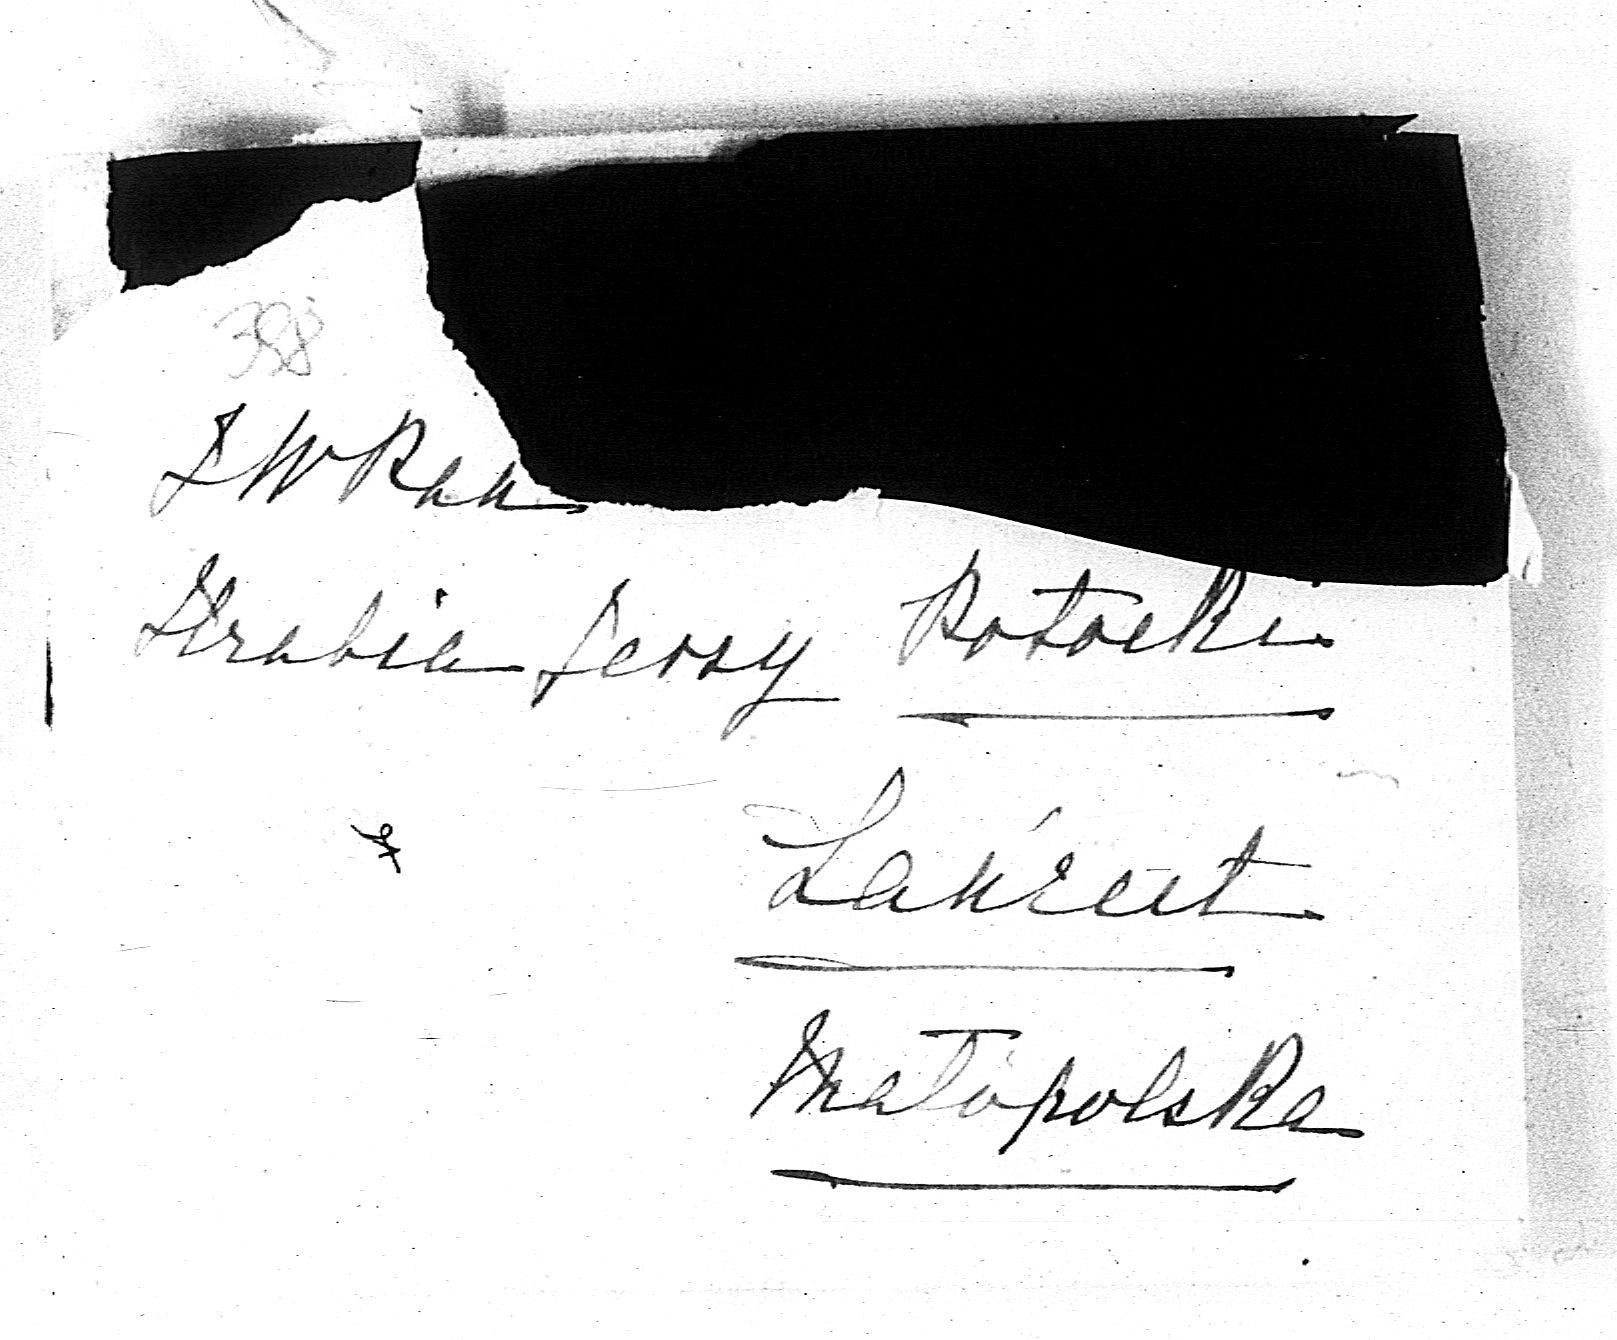 398
J W Pan
Hrabia Jerzy Potocki
Łańcut
Małopolska